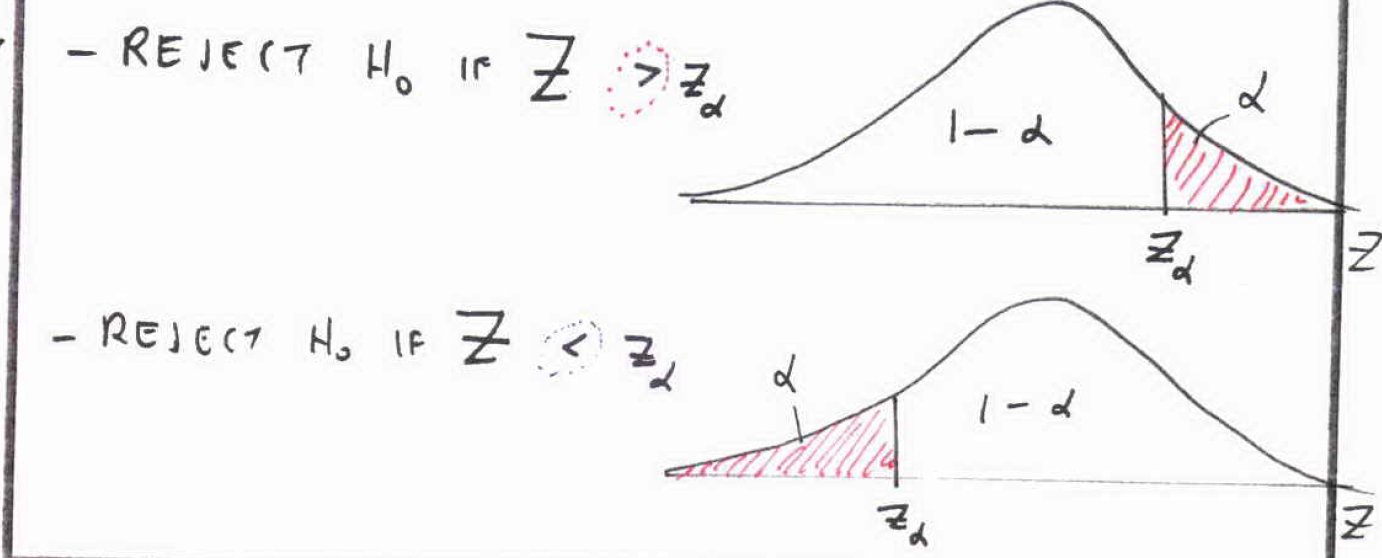 - REJECT H₀ IF Z > z_α
1 - α
α
z_α
Z
- REJECT H₀ IF Z < z_α
α
1 - α
z_α
Z